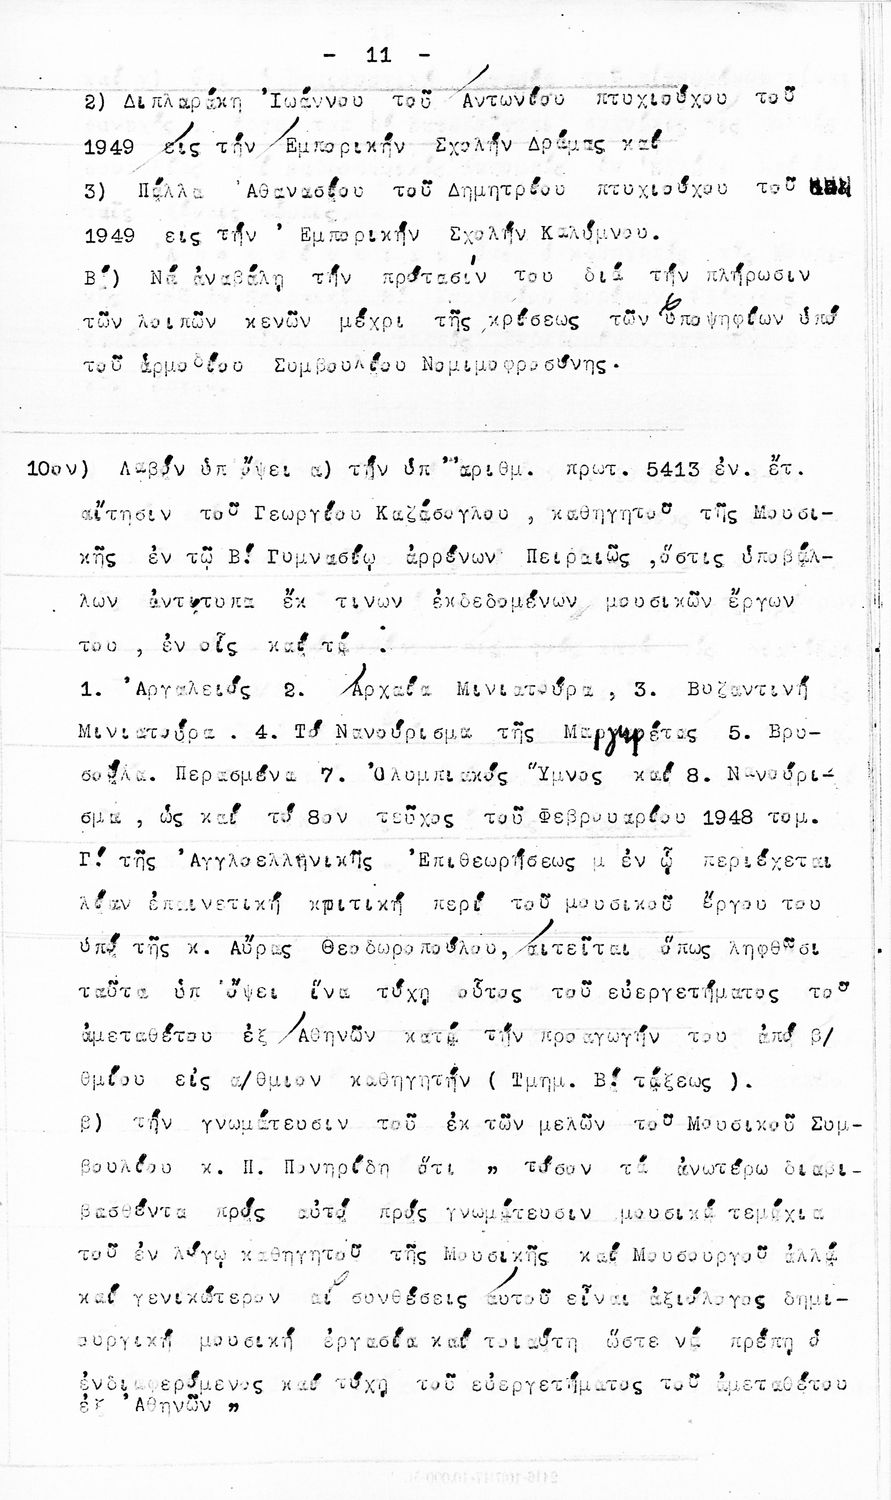 - 11 -
2) Διπλαράκη Ἰωάννου τοῦ Ἀντωνίου πτυχιούχου τοῦ
1949 εἰς τήν Ἐμπορικήν Σχολήν Δράμας καί
3) Πάλλα Ἀθανασίου τοῦ Δημητρίου πτυχιούχου τοῦ
1949 εις τήν Ἐμπορικήν Σχολήν Καλύμνου.
Β΄) Νά ἀναβάλη τήν πρότασίν του διά τήν πλήρωσιν
τῶν λοιπῶν κενῶν μέχρι τῆς κρίσεως τῶν ὑποψηφίων ὑπό
τοῦ ἁρμοδίου Συμβουλίου Νομιμοφροσύνης.
10ον) Λαβόν ὑπ ὄψει α) τήν ὑπ ἀριθμ. πρωτ. 5413 ἐν. ἔτ.
αἴτησιν τοῦ Γεωργίου Καζάσογλου , καθηγητοῦ τῆς Μουσι-
κῆς ἐν τῷ Β΄ Γυμνασίῳ ἀρρένων Πειραιῶς ,ὅστις ὑποβάλ-
λων ἀντίτυπα ἔκ τινων ἐκδεδομένων μουσικῶν ἔργων
του , ἐν οἷς καί τά :
1. Ἀργαλειός 2. Ἀρχαία Μινιατούρα , 3. Βυζαντινή
Μινιατούρα . 4. Τό Νανούρισμα τῆς Μαργαρέτας 5. Βρυ-
σούλα. Περασμένα 7. Ὀλυμπιακός Ὕμνος καί 8. Νανούρι-
σμα , ὡς καί τό 8ον τεῦχος τοῦ Φεβρουαρίου 1948 τομ.
Γ΄ τῆς Ἀγγλοελληνικῆς Ἐπιθεωρήσεως μ ἐν ᾧ περιέχεται
λίαν ἐπαινετική κριτική περί τοῦ μουσικοῦ ἔργου του
ὑπό τῆς κ. Αὔρας Θεοδωροπούλου, αἰτεῖται ὅπως ληφθῦσι
ταῦτα ὑπ ὄψει ἵνα τύχῃ οὗτος τοῦ εὐεργετήματος τοῦ
ἀμεταθέτου ἐξ Ἀθηνῶν κατά τήν προαγωγήν του ἀπό β/
θμίου εἰς α/θμιον καθηγητήν ( Τμημ. Β΄ τάξεως ).
β) τήν γνωμάτευσιν τοῦ ἐκ τῶν μελῶν τοῦ Μουσικοῦ Συμ-
βουλίου κ. Π. Πονηρίδη ὅτι „ τόσον τά ἀνωτέρω διαβι-
βασθέντα πρός αὐτό πρός γνωμάτευσιν μουσικά τεμάχια
τοῦ ἐν λόγῳ καθηγητοῦ τῆς Μουσικῆς καί Μουσουργοῦ ἀλλά
καί γενικώτερον αἱ συνθέσεις αὐτοῦ εἶναι ἀξιόλογος δημι-
ουργική μουσική ἐργασία καί τοιαύτη ὥστε νά πρέπῃ ὁ
ἐνδιαφερόμενος καί τύχῃ τοῦ εὐεργετήματος τοῦ ἀμεταθέτου
ἐξ Ἀθηνῶν „